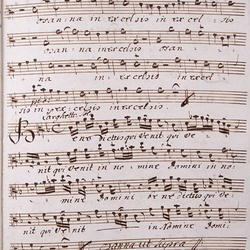 osanna in excelsis in excel sis
osanna in excelsis osan
na in excelsis in excel
sis in excelsis in excelsis
Larghetto
Benedictus qui venit qui ve
nit qui venit in nomine Domini in no
mine Domini benedictus qui ve
nit qui venit in Nomine Domi:
Osanna ut supra